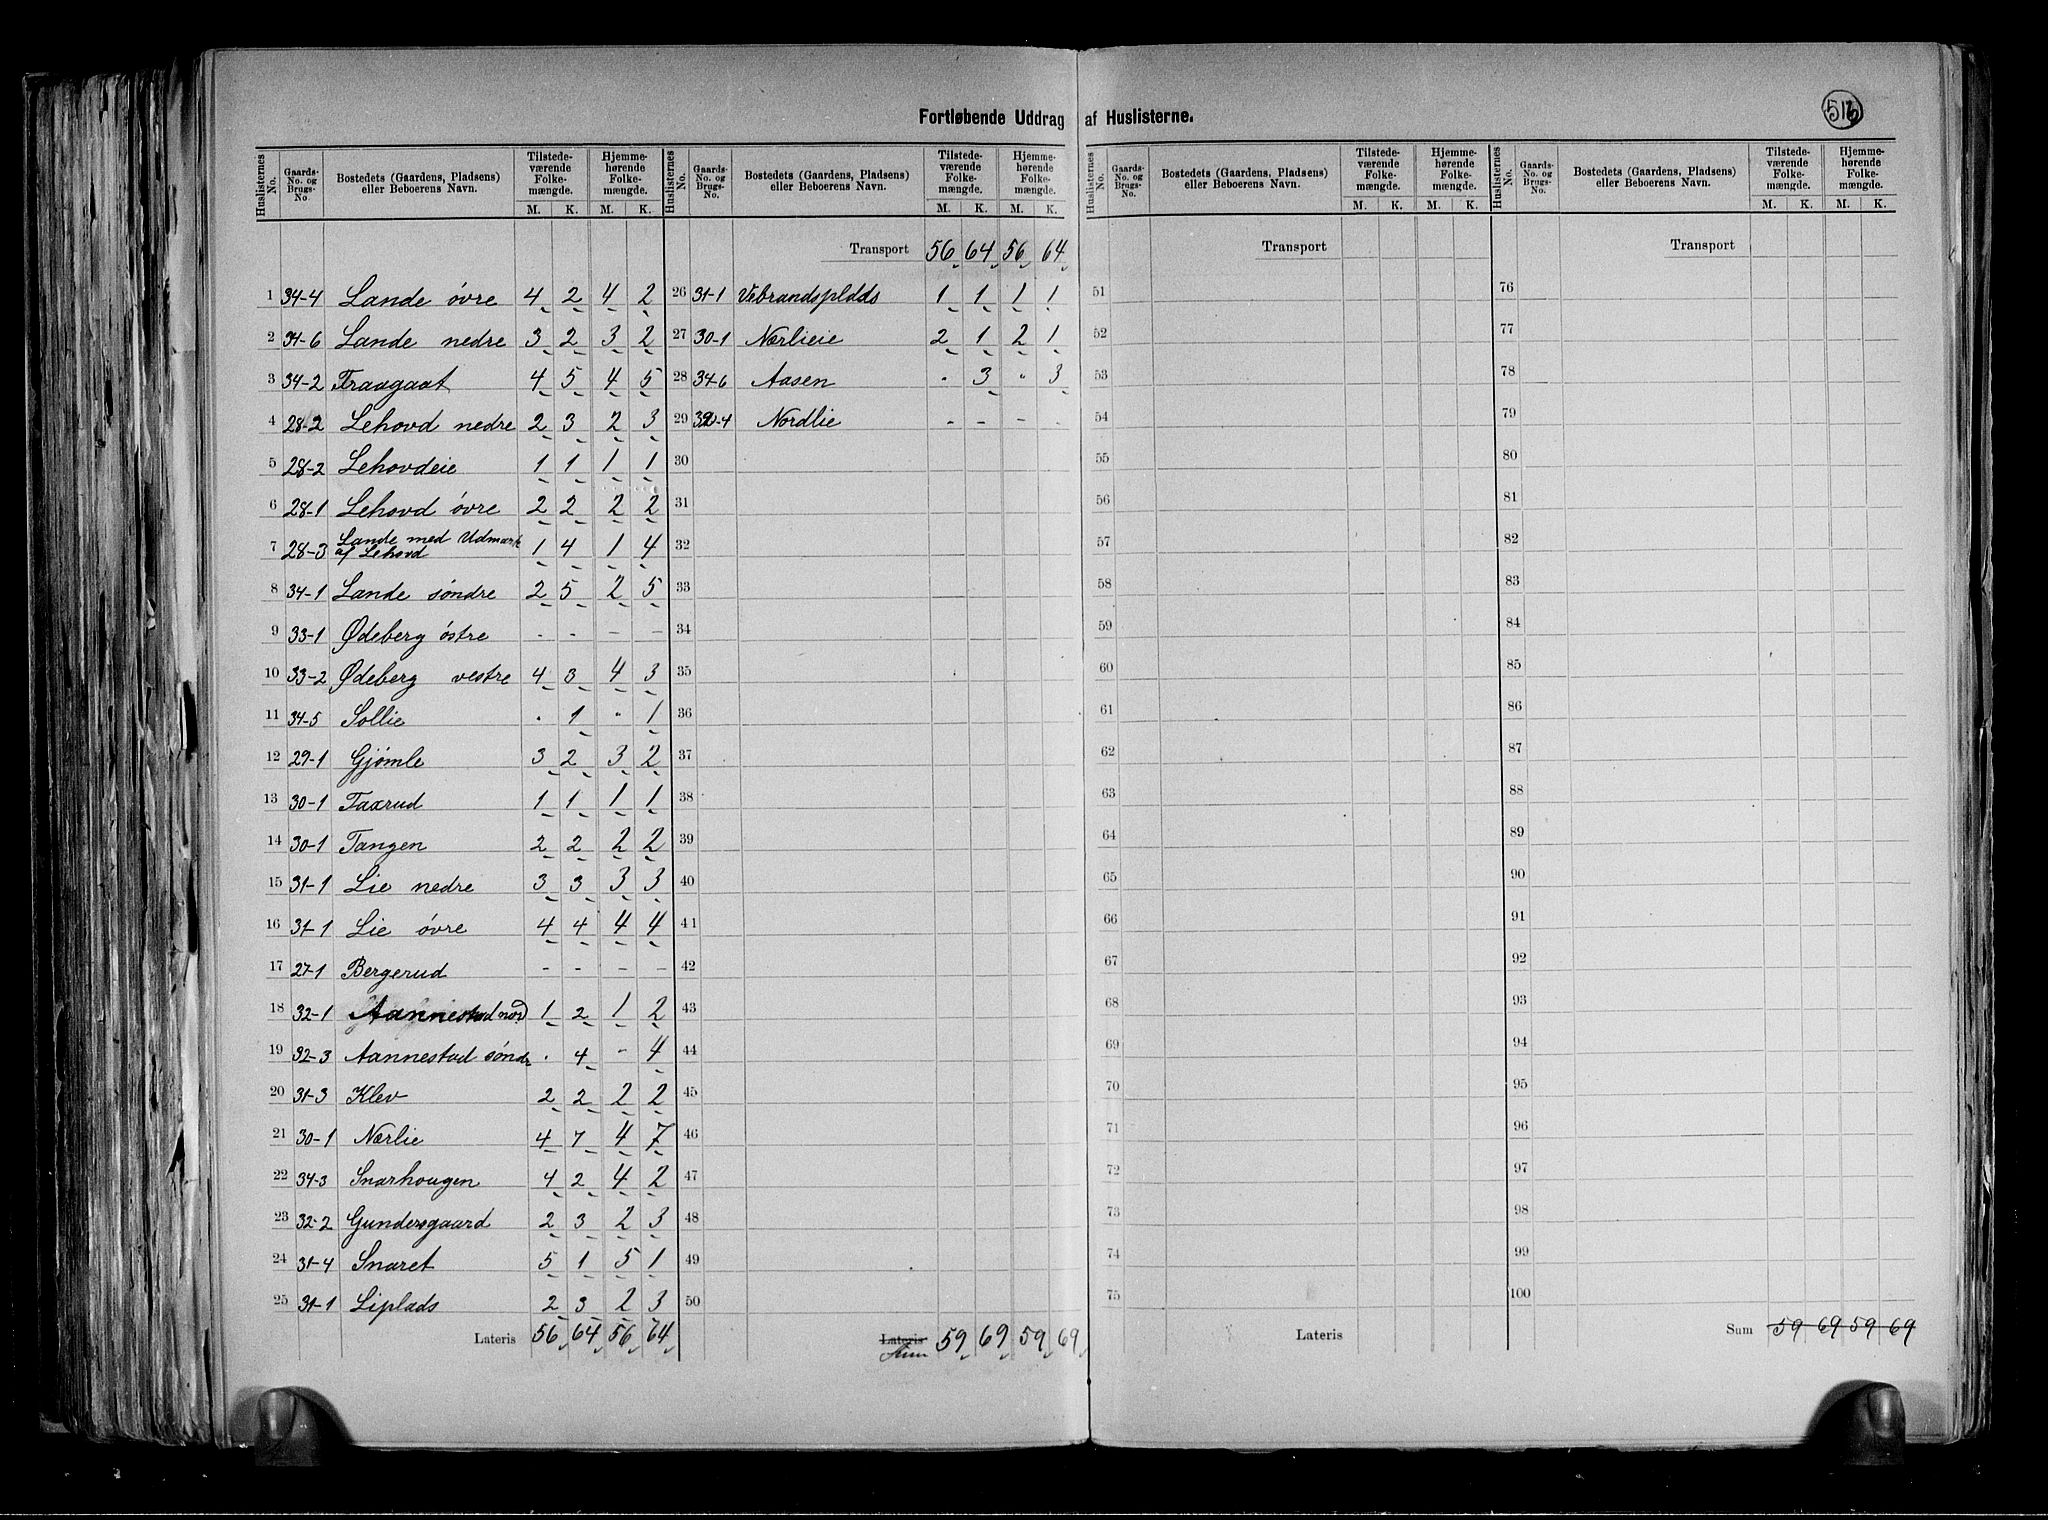 516
Fortløbende Uddrag af Huslisterne.
Huslisternes No. | Gaards-No. og Brugs-No | Bostedets (Gaardens, Pladsens) eller Beboerens Navn. | Tilstedeværende Folkemængde. M. K. | Hjemmehørende Folkemængde. M. K.
1 34-4 Lande øvre 4 2 4 2
2 34-6 Lande nedre 3 2 3 2
3 34-2 Fraagaat 4 5 4 5
4 28-2 Lehovd nedre 2 3 2 3
5 28-2 Lehovdeie 1 1 1 1
6 28-1 Lehovd øvre 2 2 2 2
7 28-3 Lande med Udmark af Lehovd 1 4 1 4
8 34-1 Lande søndre 2 5 2 5
9 33-1 Ødeberg østre - - - -
10 33-2 Ødeberg vestre 4 3 4 3
11 34-5 Sollie " 1 " 1
12 29-1 Gjømle 3 2 3 2
13 30-1 Taxrud 1 1 1 1
14 30-1 Tangen 2 2 2 2
15 31-1 Lie nedre 3 3 3 3
16 31-1 Lie øvre 4 4 4 4
17 27-1 Bergerud - - - -
18 32-1 Aannestad nord 1 2 1 2
19 32-3 Aannestad søndr " 4 " 4
20 31-3 Klev 2 2 2 2
21 30-1 Nærlie 4 7 4 7
22 34-3 Snarhougen 4 2 4 2
23 32-2 Gundersgaard 2 3 2 3
24 31-4 Snaret 5 1 5 1
25 31-1 Liplads 2 3 2 3
Lateris 56 64 56 64
Huslisternes No. | Gaards-No. og Brugs-No. | Bostedets (Gaardens, Pladsens) eller Beboerens Navn. | Tilstedeværende Folkemængde. M. K. | Hjemmehørende Folkemængde. M. K.
Transport 56 64 56 64
26 31-1 Vebrandsplads 1 1 1 1
27 30-1 Nærlieie 2 1 2 1
28 34-6 Aasen " 3 " 3
29 32-4 Nordlie - - - -
30
31
32
33
34
35
36
37
38
39
40
41
42
43
44
45
46
47
48
49
50
Lateris Sum 59 69 59 69
Huslisternes No. | Gaards-No. og Brugs-No. | Bostedets (Gaardens, Pladsens) eller Beboerens Navn. | Tilstedeværende Folkemængde. M. K. | Hjemmehørende Folkemængde. M. K.
Transport
51
52
53
54
55
56
57
58
59
60
61
62
63
64
65
66
67
68
69
70
71
72
73
74
75
Lateris
Huslisternes No. | Gaards-No. og Brugs-No. | Bostedets (Gaardens, Pladsens) eller Beboerens Navn. | Tilstedeværende Folkemængde. M. K. | Hjemmehørende Folkemængde. M. K.
Transport
76
77
78
79
80
81
82
83
84
85
86
87
88
89
90
91
92
93
94
95
96
97
98
99
100
Sum 59 69 59 69